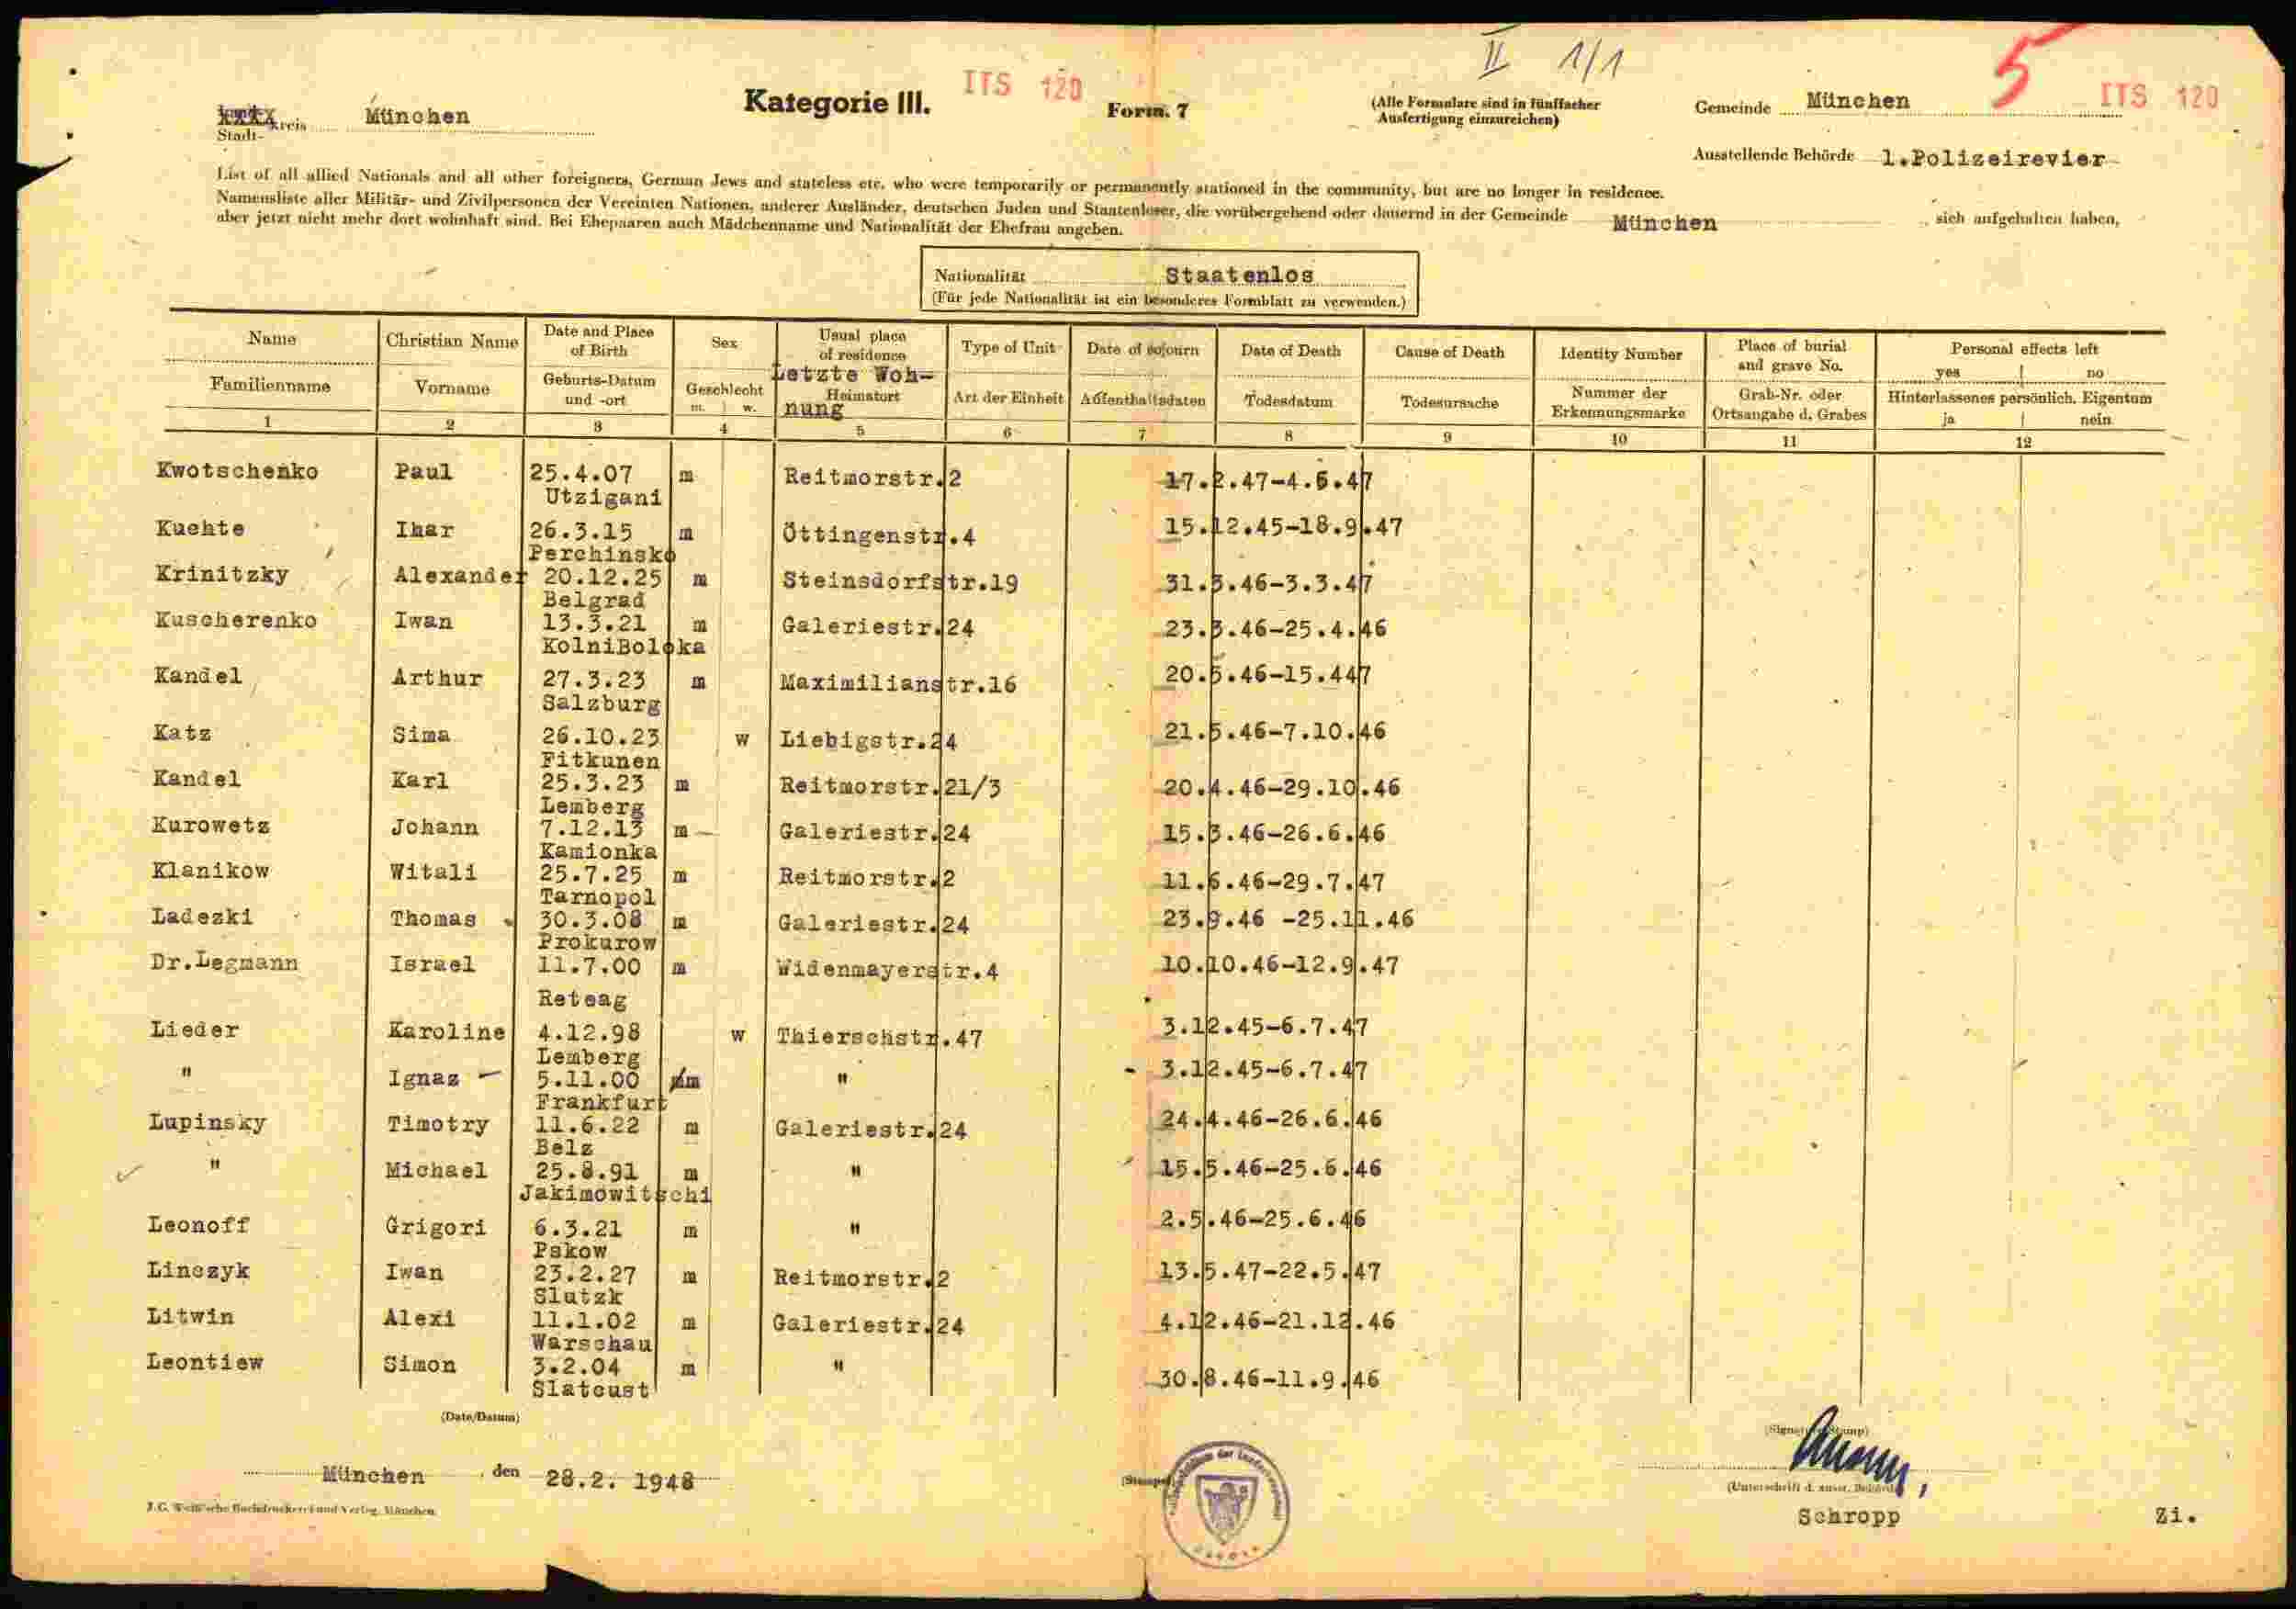 II 1/1
5
ITS 120
ITS 120
Stadt- kreis München
Kategorie III.
Form. 7
(Alle Formulare sind in fünffacher
Ausfertigung einzureichen)
Gemeinde München
Ausstellende Behörde 1.Polizeirevier
List of all allied Nationals and all other foreigners, German Jews and stateless etc. who were temporarily or permanently stationed in the community, but are no longer in residence.
Namensliste aller Militär- und Zivilpersonen der Vereinten Nationen, anderer Ausländer, deutschen Juden und Staatenloser, die vorübergehend oder dauernd in der Gemeinde München sich aufgehalten haben,
aber jetzt nicht mehr dort wohnhaft sind. Bei Ehepaaren auch Mädchenname und Nationalität der Ehefrau angeben.
Nationalität Staatenlos
(Für jede Nationalität ist ein besonderes Formblatt zu verwenden.)
Name Christian Name Date and Place of Birth Sex Usual place of residence Type of Unit Date of sojourn Date of Death Cause of Death Identity Number Place of burial and grave No. Personal effects left yes no
Familienname Vorname Geburts-Datum und -ort Geschlecht m. w. Letzte Woh- Heimatort nung Art der Einheit Aufenthaltsdaten Todesdatum Todesursache Nummer der Erkennungsmarke Grab-Nr. oder Ortsangabe d. Grabes Hinterlassenes persönlich. Eigentum ja nein
1 2 3 4 5 6 7 8 9 10 11 12
Kwotschenko Paul 25.4.07 m Reitmorstr.2 17.2.47-4.6.47
Utzigani
Kuchte Ihar 26.3.15 m Öttingenstr.4 15.12.45-18.9.47
Perchinsko
Krinitzky Alexander 20.12.25 m Steinsdorfstr.19 31.3.46-3.3.47
Belgrad
Kuscherenko Iwan 13.3.21 m Galeriestr.24 23.3.46-25.4.46
KolniBoloka
Kandel Arthur 27.3.23 m Maximilianstr.16 20.5.46-15.447
Salzburg
Katz Sima 26.10.23 w Liebigstr.24 21.5.46-7.10.46
Fitkunen
Kandel Karl 25.3.23 m Reitmorstr.21/3 20.4.46-29.10.46
Lemberg
Kurowetz Johann 7.12.13 m Galeriestr.24 15.3.46-26.6.46
Kamionka
Klanikow Witali 25.7.25 m Reitmorstr.2 11.6.46-29.7.47
Tarnopol
Ladezki Thomas 30.3.08 m Galeriestr.24 23.9.46 -25.11.46
Prokurow
Dr.Legmann Israel 11.7.00 m Widenmayerstr.4 10.10.46-12.9.47
Reteag
Lieder Karoline 4.12.98 w Thierschstr.47 3.12.45-6.7.47
Lemberg
" Ignaz 5.11.00 m " 3.12.45-6.7.47
Frankfurt
Lupinsky Timotry 11.6.22 m Galeriestr.24 24.4.46-26.6.46
Belz
" Michael 25.8.91 m " 15.5.46-25.6.46
Jakimowitschi
Leonoff Grigori 6.3.21 m " 2.5.46-25.6.46
Pskow
Linczyk Iwan 23.2.27 m Reitmorstr.2 13.5.47-22.5.47
Slutzk
Litwin Alexi 11.1.02 m Galeriestr.24 4.12.46-21.12.46
Warschau
Leontiew Simon 3.2.04 m " 30.8.46-11.9.46
Slatoust
(Date/Datum)
München , den 28.2. 1948
(Stempel)
(Unterschrift d. ausst. Behörde)
Schropp Zi.